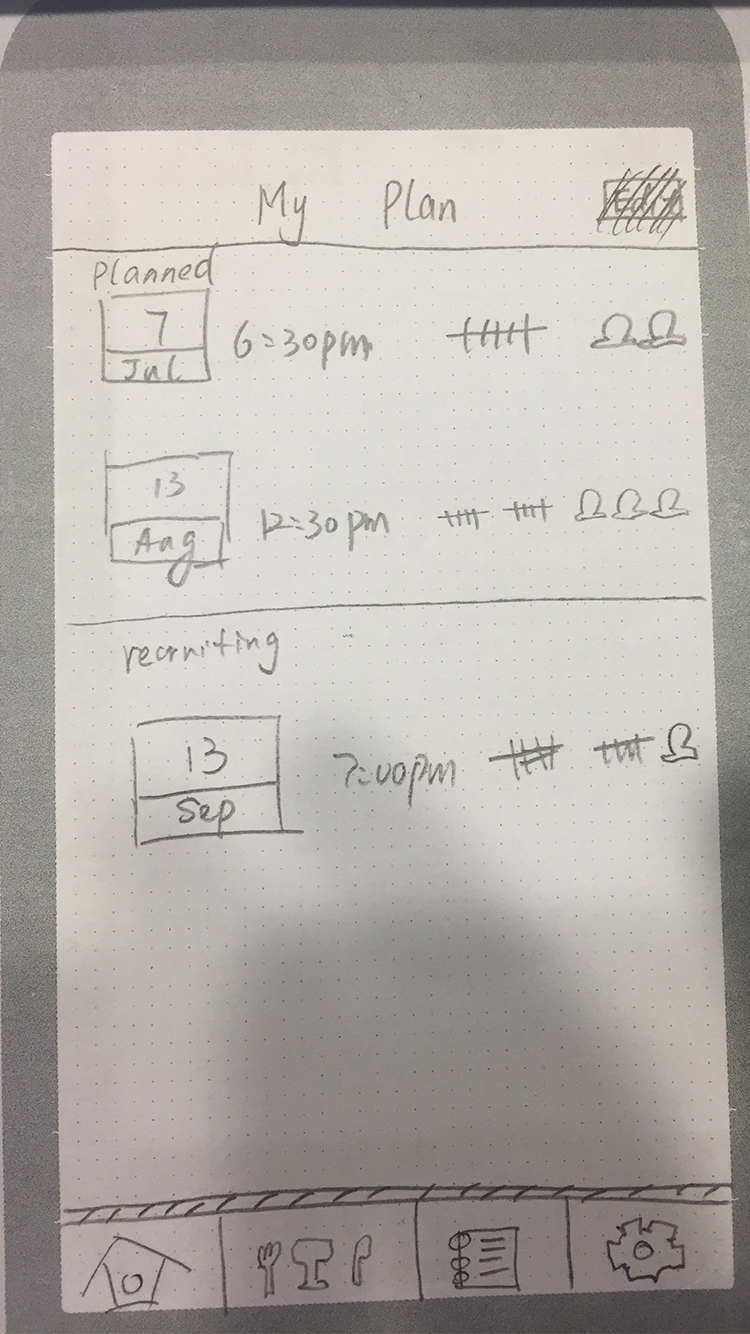 My Plan
Planned
7
Jul
6:30pm
13
Aug
12:30pm
recruiting
13
Sep
7:00pm